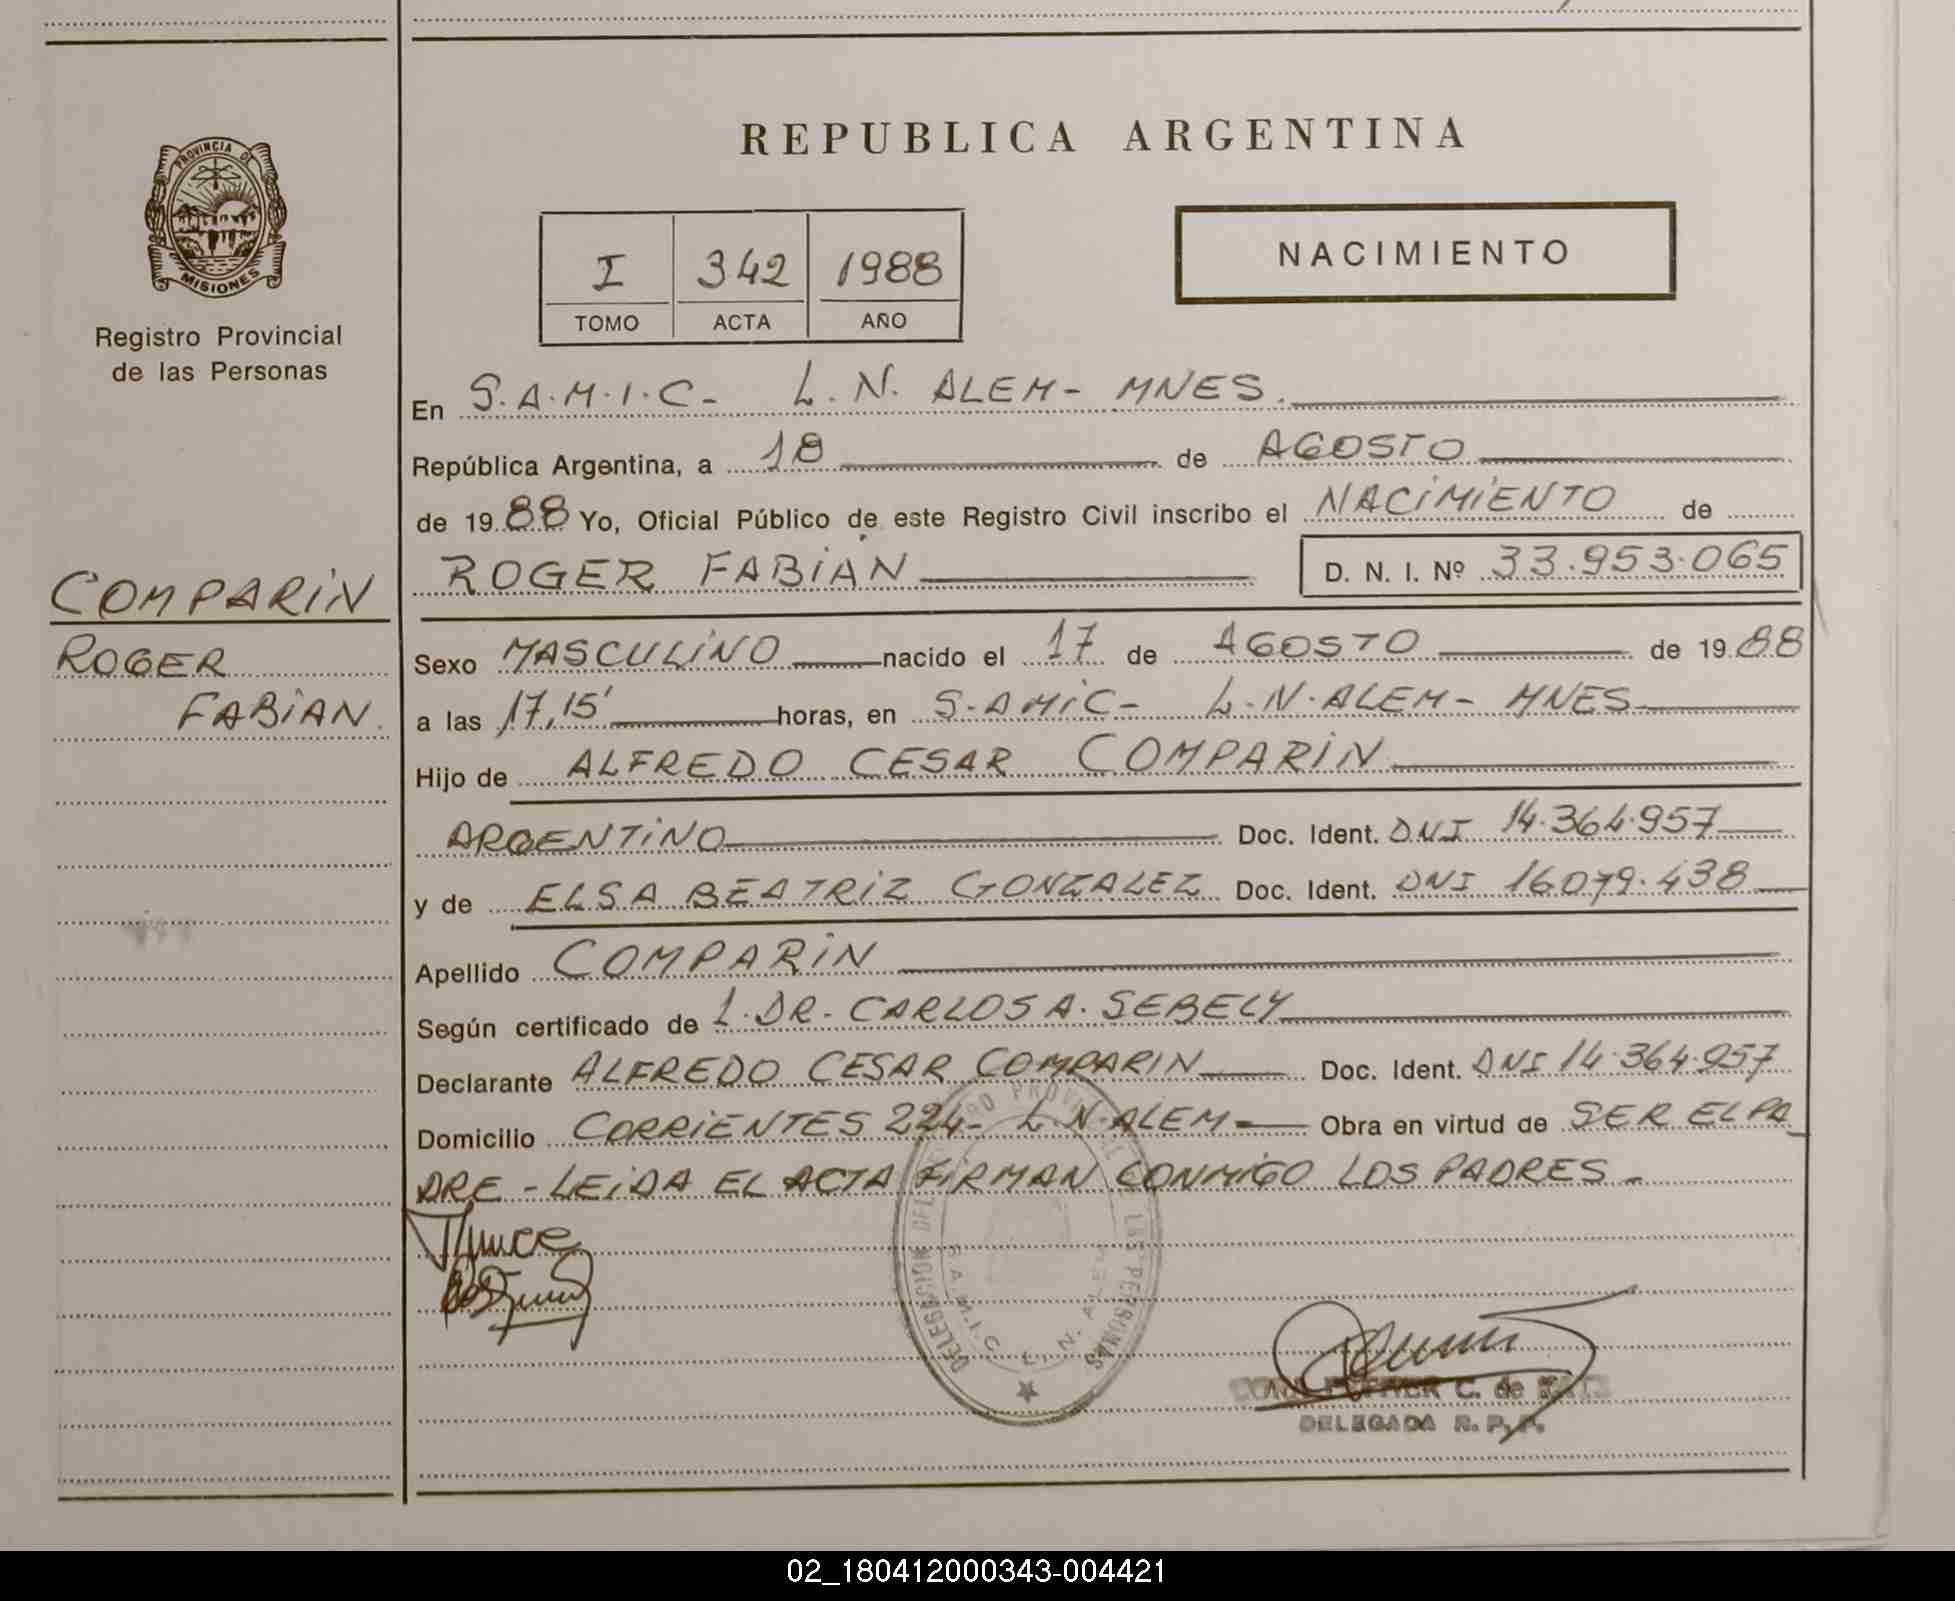 REPUBLICA ARGENTINA
PROVINCIA DE
MISIONES
Registro Provincial
de las Personas
I 342 1988
TOMO ACTA AÑO
NACIMIENTO
En S.A.M.I.C- L.N. ALEM- MNES.
República Argentina, a 18 de AGOSTO
de 1988 Yo, Oficial Público de este Registro Civil inscribo el NACIMIENTO de
ROGER FABIAN D. N. I. Nº 33.953.065
COMPARIN
ROGER
FABIAN.
Sexo MASCULINO nacido el 17 de AGOSTO de 1988
a las 17,15' horas, en S.AMIC- L.N.ALEM- MNES
Hijo de ALFREDO CESAR COMPARIN
ARGENTINO Doc. Ident. DNI 14.364.957
y de ELSA BEATRIZ GONZALEZ Doc. Ident. DNI 16.079.438
Apellido COMPARIN
Según certificado de L.DR. CARLOS A. SEBELY
Declarante ALFREDO CESAR COMPARIN Doc. Ident. DNI 14.364.957
Domicilio CORRIENTES 224- L.N.ALEM- Obra en virtud de SER EL PA
DRE - LEIDA EL ACTA FIRMAN CONMIGO LOS PADRES.-
DELEGACION DEL PROVI LAS PERSONAS
S.A.M.I.C. L.N. ALEM
C. de
DELEGADA R. P. P.
02_180412000343-004421